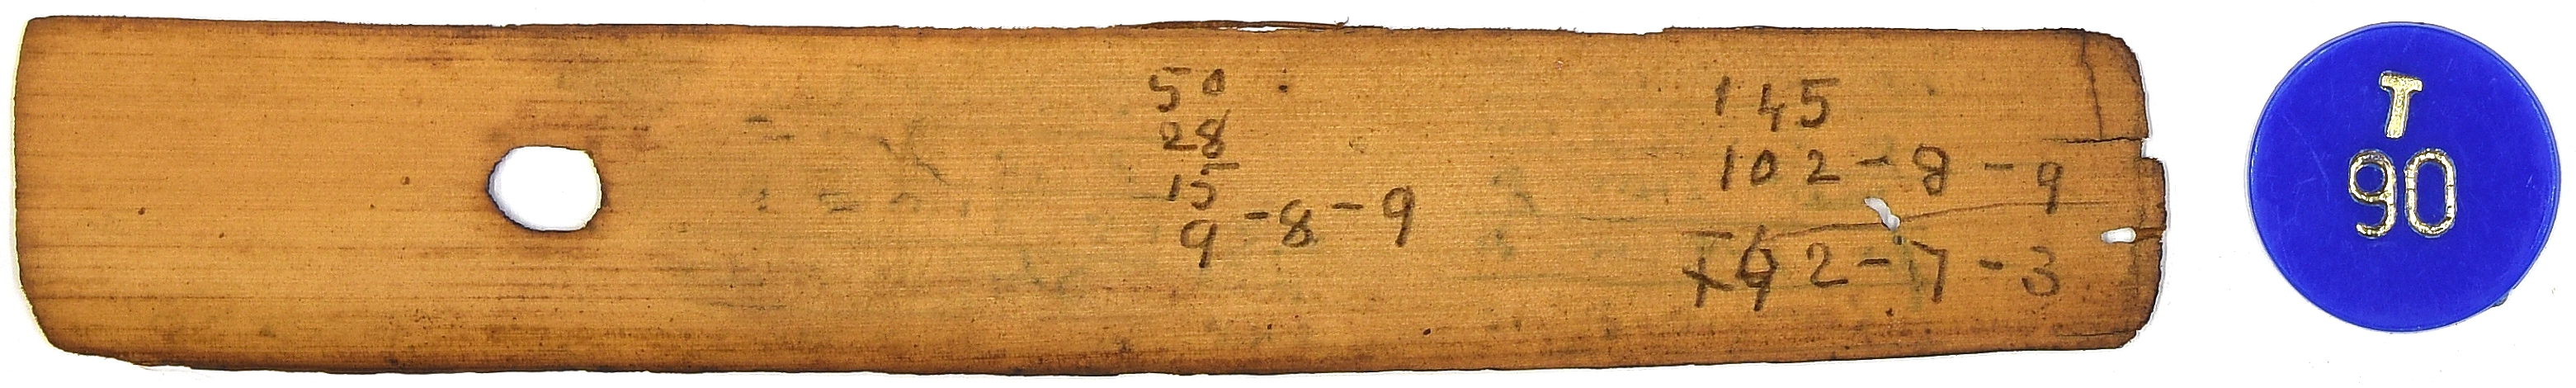 50
28
15
9-8-9
145
102-8-9
42-7-3
T
90